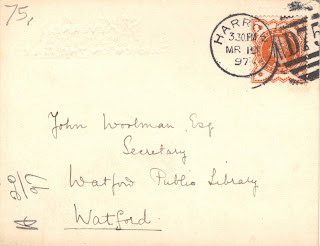 75,
HARROW
3.30 PM
MR
97
John Woolman, Esq
Secretary
Watford Public Library
Watford.
20
97